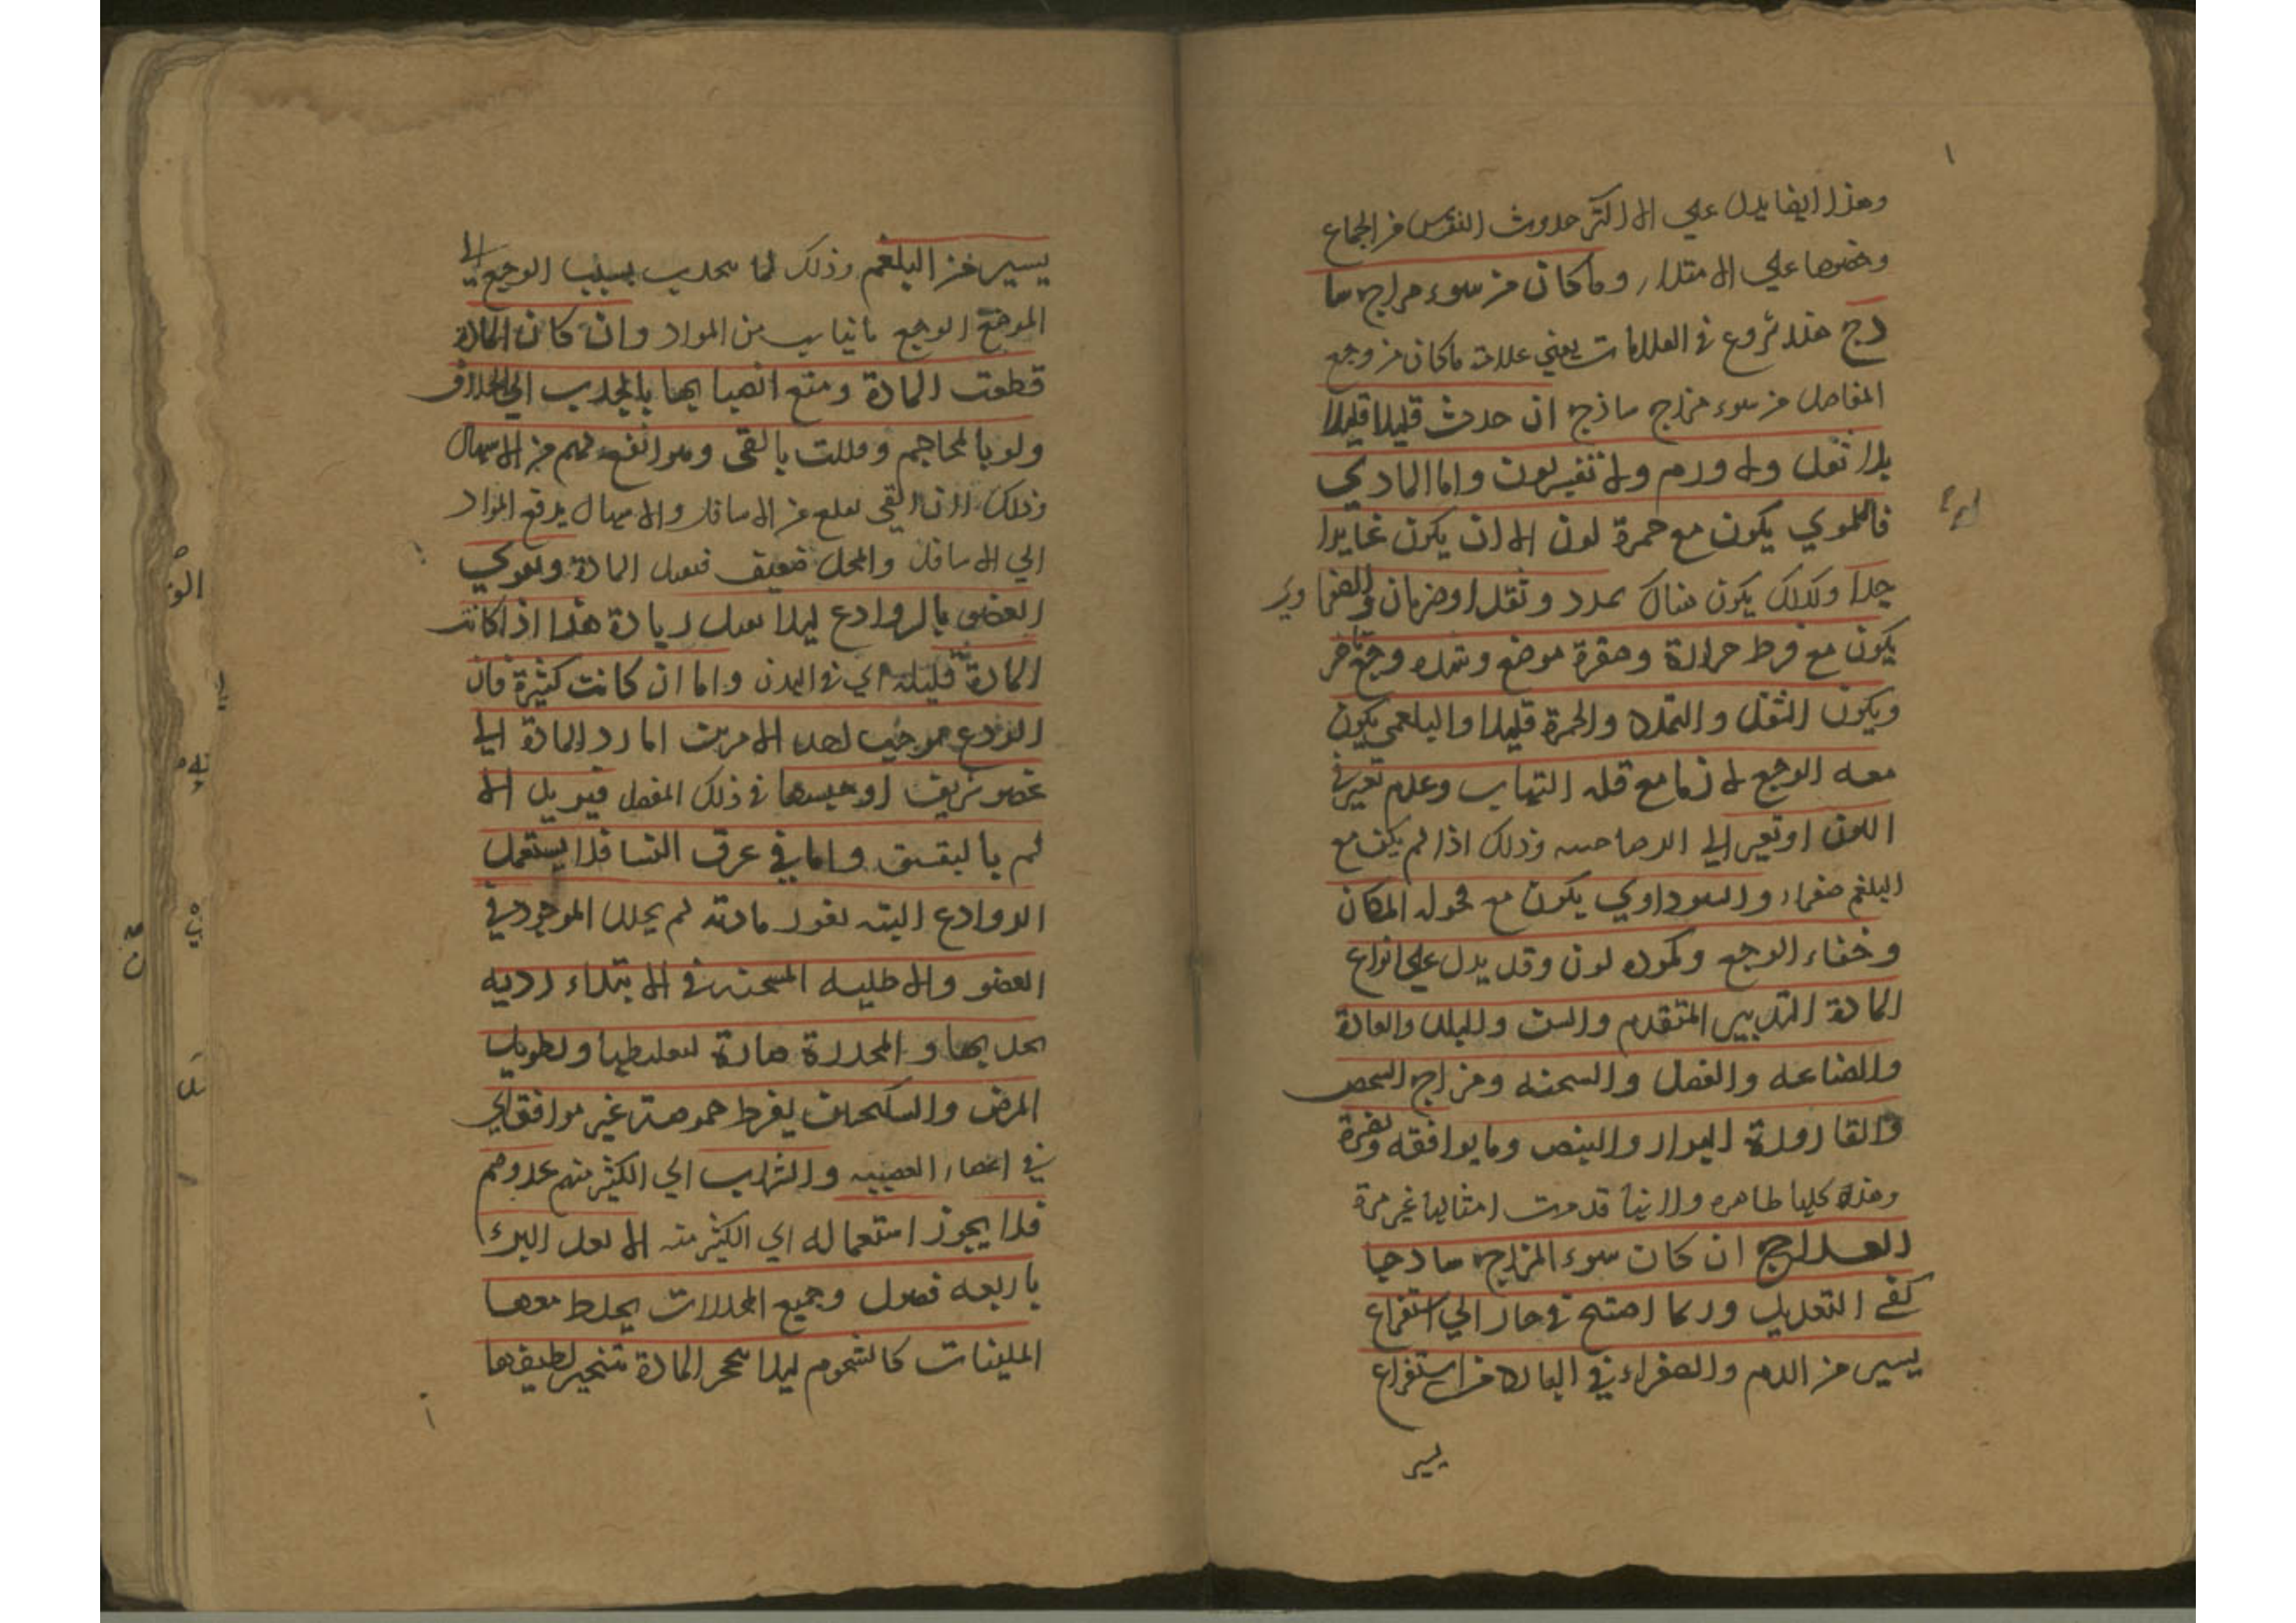 وهذا ايضا يدل علي الا اكثر حدوث النقرس من الجماع
وخصوصا علي الامتلاء وما كان من سوء مزاج سا
دج هذا شروع في العلامات يعني علامة ما كان من وجع
المفاصل من سوء مزاج ساذج ان حدث قليلا قليلا
بلا ثقل ولا ورم ولا تغير لون واما المادي
فالدموي يكون مع حمرة لون الا ان يكون غايرا
جدا وكذلك يكون هناك تمدد وثقل او ضربان والصفراوي
يكون مع فرط حرارة وصفرة موضع وشدة وجع
ويكون الثقل والتمدد والحمرة قليلا والبلغمي يكون
معه الوجع لازما مع قلة التهاب وعدم تغير في
اللون او تغير الي الرصاصيه وذلك اذا لم يكن مع
البلغم صفراء والسوداوي يكون مع قحولة المكان
وخفاء الوجع وكمودة لون وقد يدل علي انواع
المادة التدبير المتقدم والسن والبلد والعادة
والصناعه والفصل والسحنه ومزاج الشخص
والقارورة البراز والنبض وما يوافقه ويضره
وهذه كلها ظاهره ولانها قدمت امثالها غير مرة
العلاج ان كان سوء المزاج ساذجا
كفي التعديل وربما احتيج في حار الي استفراغ
يسير من الدم والصفراء في البارد من استفراغ
يسير
يسير من البلغم وذلك لما ينجذب بسبب الوجع الي
الموضع الوجع بانياب من المواد وان كان المادة
قطعت المادة ومنع انصبابها بالجذب الي الخلاف
ولو بالمحاجم وقللت بالقي وهو انفع لهم من الاسهال
وذلك لان القي يقلع من الاسافل والاسهال يدفع المواد
الي الاسافل والمحل ضعيف فيقبل المادة ويقوي
العضو بالروادع ليلا يقبل زيادة هذا اذا كانت
المادة قليلة اي في البدن واما ان كانت كثيرة فان
الردع موجب لاحد الامرين اما رد المادة الي
عضو شريف او حبسها في ذلك المفصل فيزيد الا
لم بالبقسق واما في عرق النسا فلا يستعمل
الروادع البته لغور مادته لم يحلل الموجود في
العضو والاطليه المسخنه في الابتداء رديه
بجذبها والمخدرة ضارة لتغليظها وتطويل
المرض والسكنجبين لفرط حموضته غير موافق اي
في اعضاء العصبيه والشراب اي الكثير منه عدوهم
فلا يجوز استعماله اي الكثير منه الا بعد البرء
باربعه فصول وجميع المحللات يخلط معها
الملينات كالشحوم ليلا يتحجر المادة بتبخير لطيفها